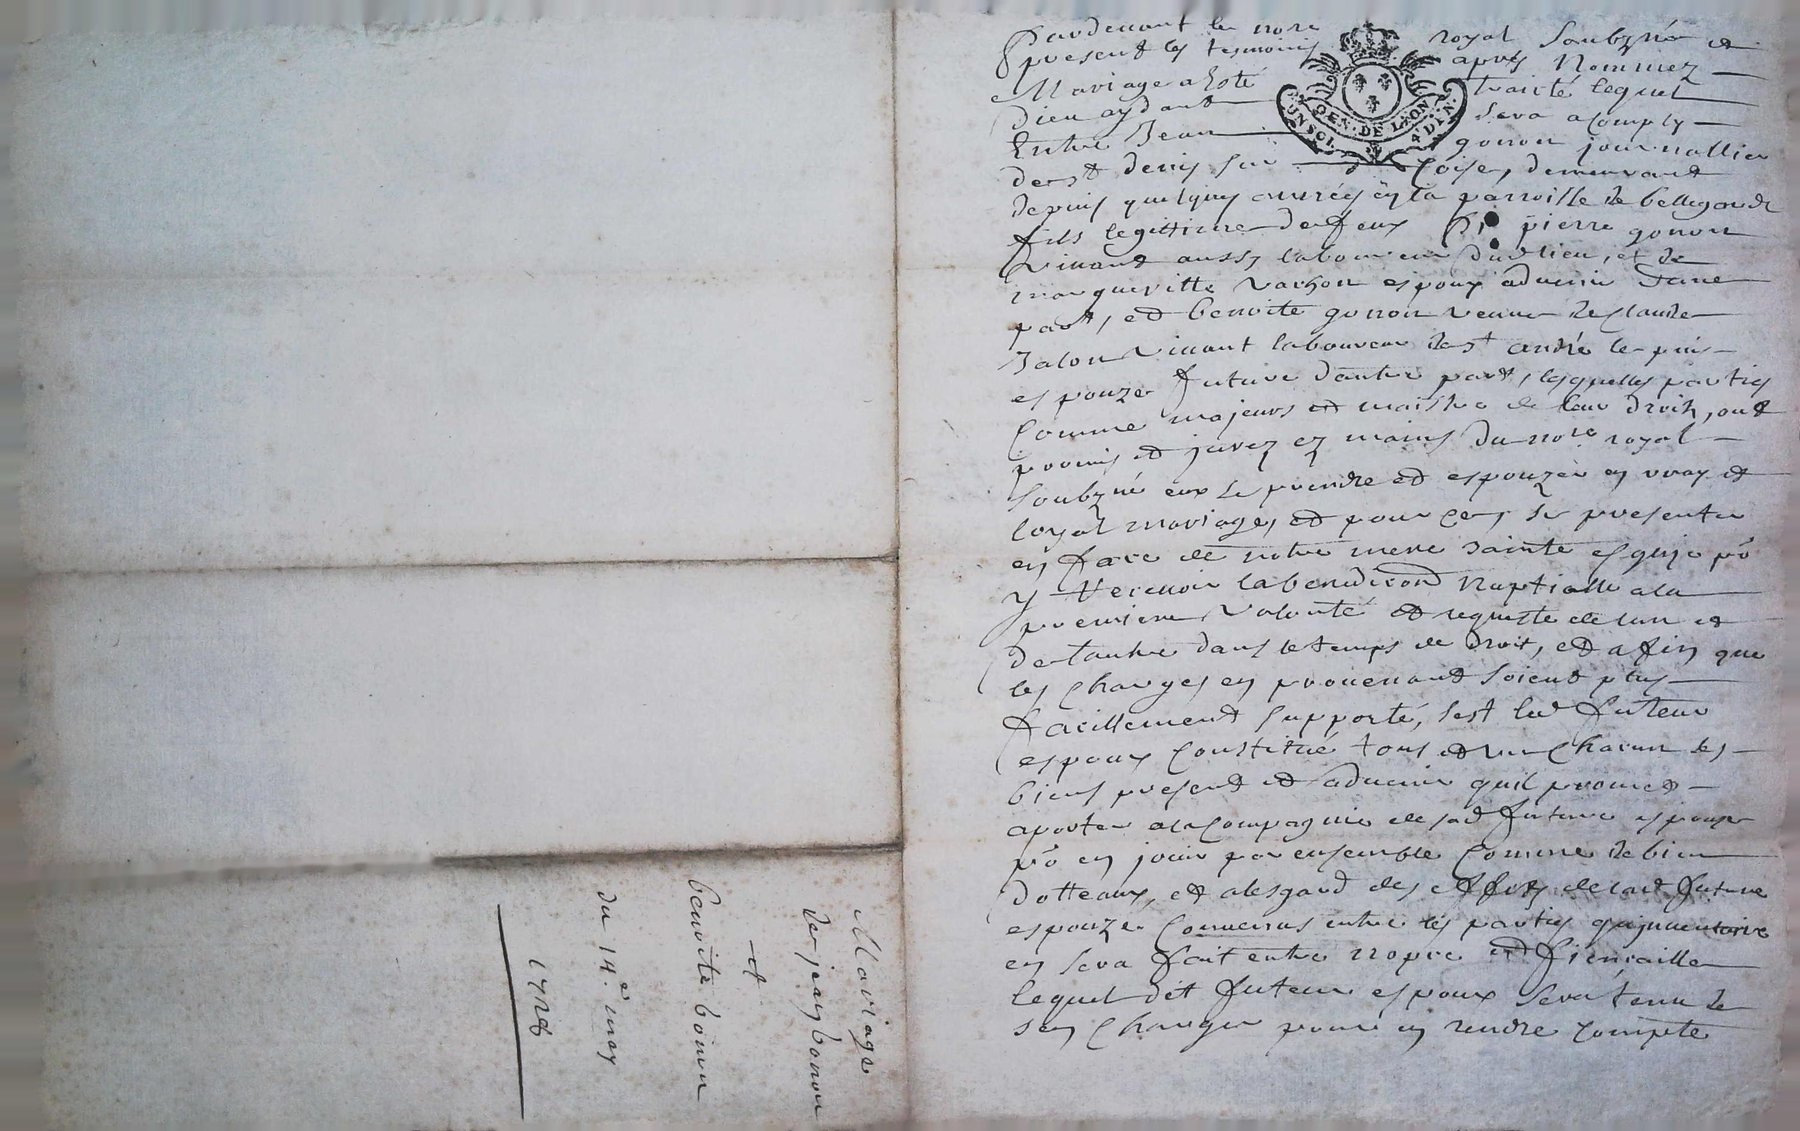 Pardevant le nore royal soubzné et
present les tesmoins apres nommez
Mariage a esté traicté lequel
Dieu aydant sera acomply
Entre Jean gonon journallier
de st denis sur Coise, demeurant
depuis quelques années en la parroisse de bellegarde
fils legittime de feux pierre gonon
vivant aussy laboureur dud lieu, et de
margueritte vachon espoux advenir dune
part, et benoite gonon veuve de Claude
Jalon vivant laboureur de st andré le puis
espouze future dautre part, lesquelles parties
Comme majeurs et maistre de leur droit, ont
promis et jurez ez mains du nore royal
soubzné eux se prendre et espouzer en vray et
loyal mariage, et pour ce, se presenter
en face de notre mere sainte esglize po
y recevoir la benediction nuptialle a la
premiere volonté et requiste de lun et
de lautre dans le temps de droit, et afin que
les charges en provenant soient plus
facillement supporté, sest led futeur
espoux constitué tous et un chacun ses
biens present et advenir quil promet
aporter a la compagnie de sad future espouze
po en jouir par ensemble comme de bien
dotteaux, et alesgard des effets de lad future
espouze convenus entre les parties quinventaire
en sera fait entre nopce et fiencaille
lequel dit futeur espoux sera tenu de
sen charger pour en rendre compte
GEN. DE LION
Mariage
de jean bonon
et
benoite bonon
du 14e may